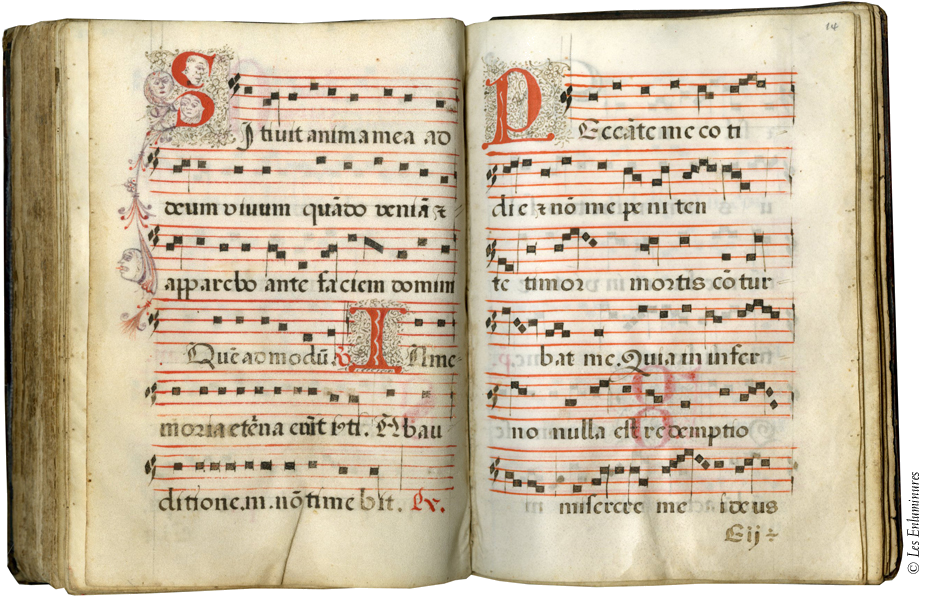 Sitiuit anima mea ad
deum viuum quādo veniā &
apparebo ante faciem domini
Quēadmodū R̃ In me
moria etērna erūt iusti. Ab au
ditione.m.nō time bit. Ev.
14
Peccāte me coti
die & nō me peniten
te timor mortis cōtur
bat me. Quia in infer
no nulla est redemptio
miserere mei deus
Eij
© Les Enluminures